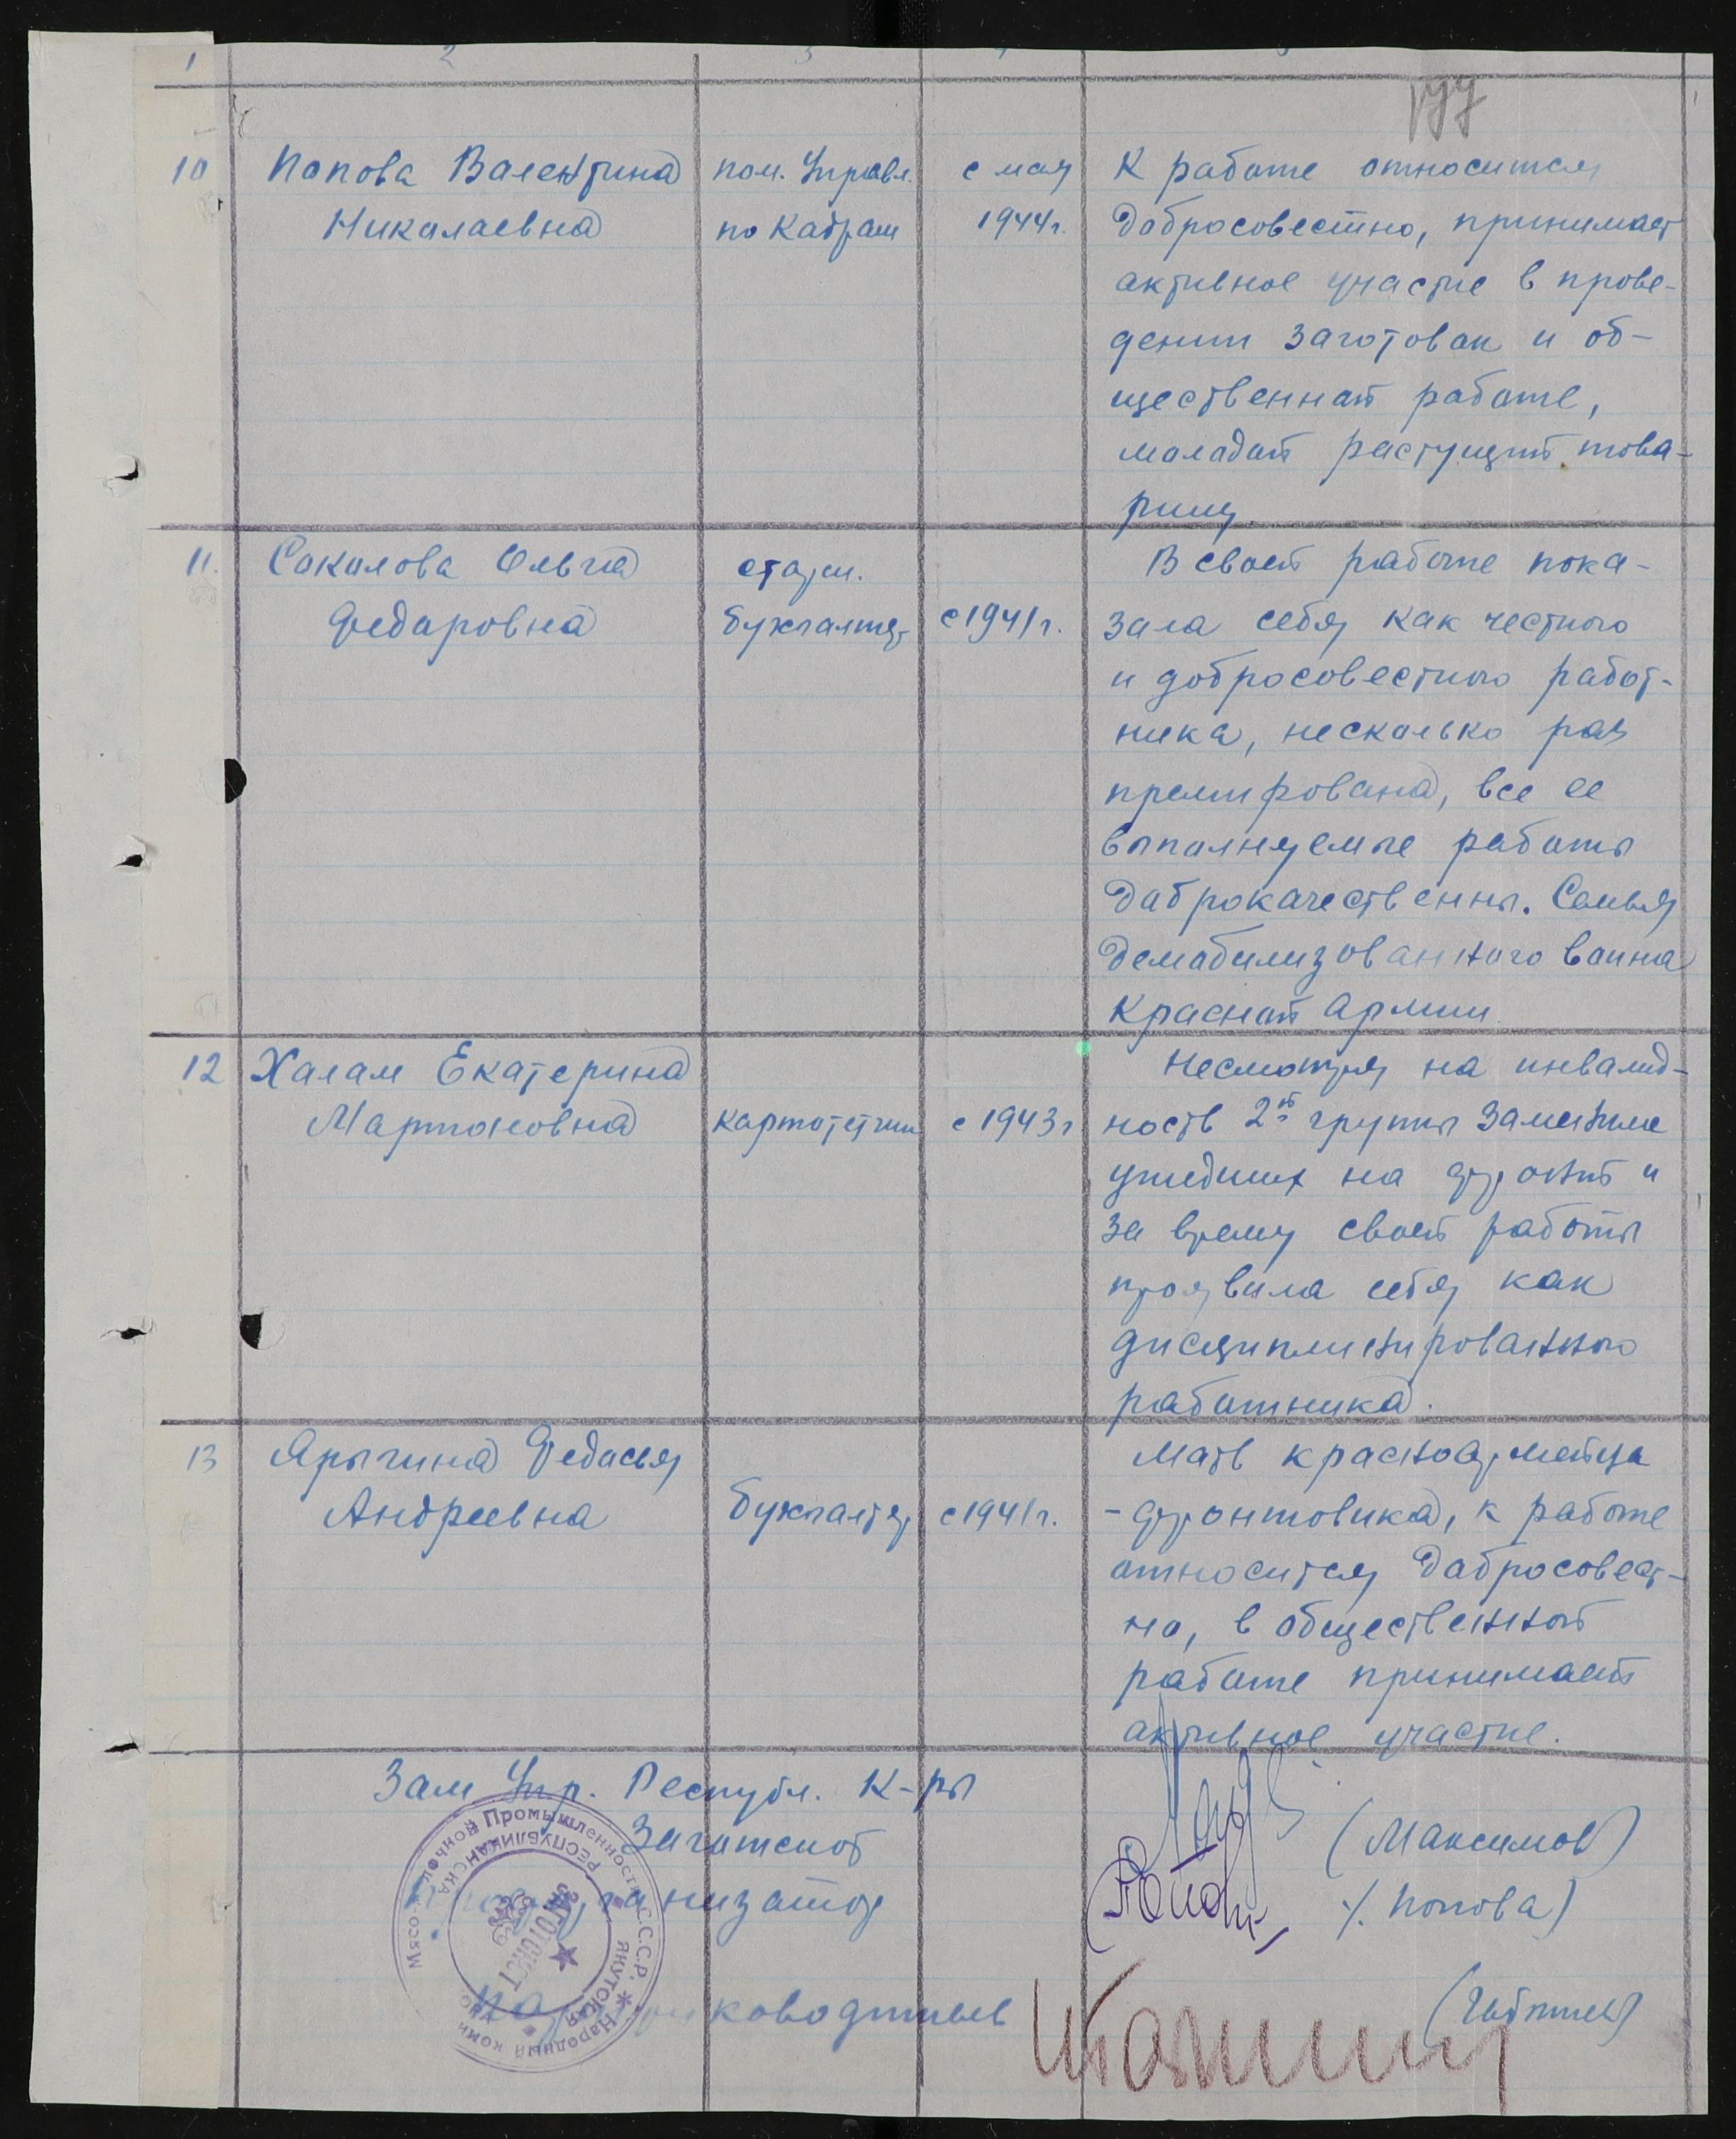 1 2 3 4 5
177
10 Попова Валентина пом. Управл. с мая К работе относится
Николаевна по Кадрам 1944г. добросовестно, принимает
активное участие в прове-
дении заготовок и об-
щественной работе,
молодой растущий това-
рищ.
11. Соколова Ольга старш. В своей работе пока-
Федоровна бухгалтер с 1941г. зала себя как честного
и добросовестного работ-
ника, несколько раз
премирована, все ее
выполняемые работы
доброкачественны. Семья
демобилизованного воина
Красной Армии.
12 Халам Екатерина Несмотря на инвалид-
Мартоновна картотетчик с 1943г ность 2й группы заменила
ушедших на фронт и
за время своей работы
проявила себя как
дисциплинированного
работника.
13 Ярыгина Федосья Мать красноармейца
Андреевна бухгалтер с 1941г. -фронтовика, к работе
относится добросовест-
но, в общественной
работе принимает
активное участие.
Зам Упр. Республ. К-ры
Заготскот (Максимов)
организатор /. Попова)
руководитель
Народный комис Мясо-молочной Промышленности С.С.С.Р.
ЯКУТСКАЯ РЕСПУБЛИКАНСКАЯ
ЗАГОТСКОТ